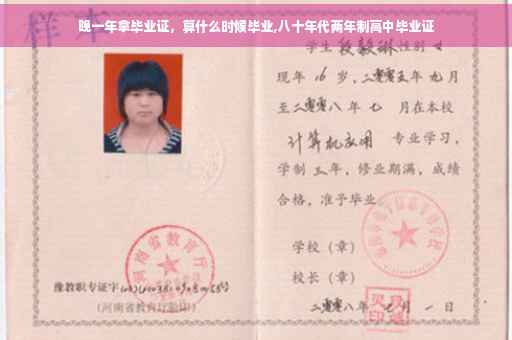 晚一年拿毕业证，算什么时候毕业,八十年代两年制高中毕业证
样本
学生 段毅琳 性别 女
现年 16 岁，二零零五年 九 月
至二零零八 年 七 月在本校
计算机应用 专业学习，
学制 三 年，修业期满，成绩
合格，准予毕业。
学校（章）
校长（章）
二零零八年 七 月 一 日
河南省教育厅
豫教职专证字
（河南省教育厅验印）